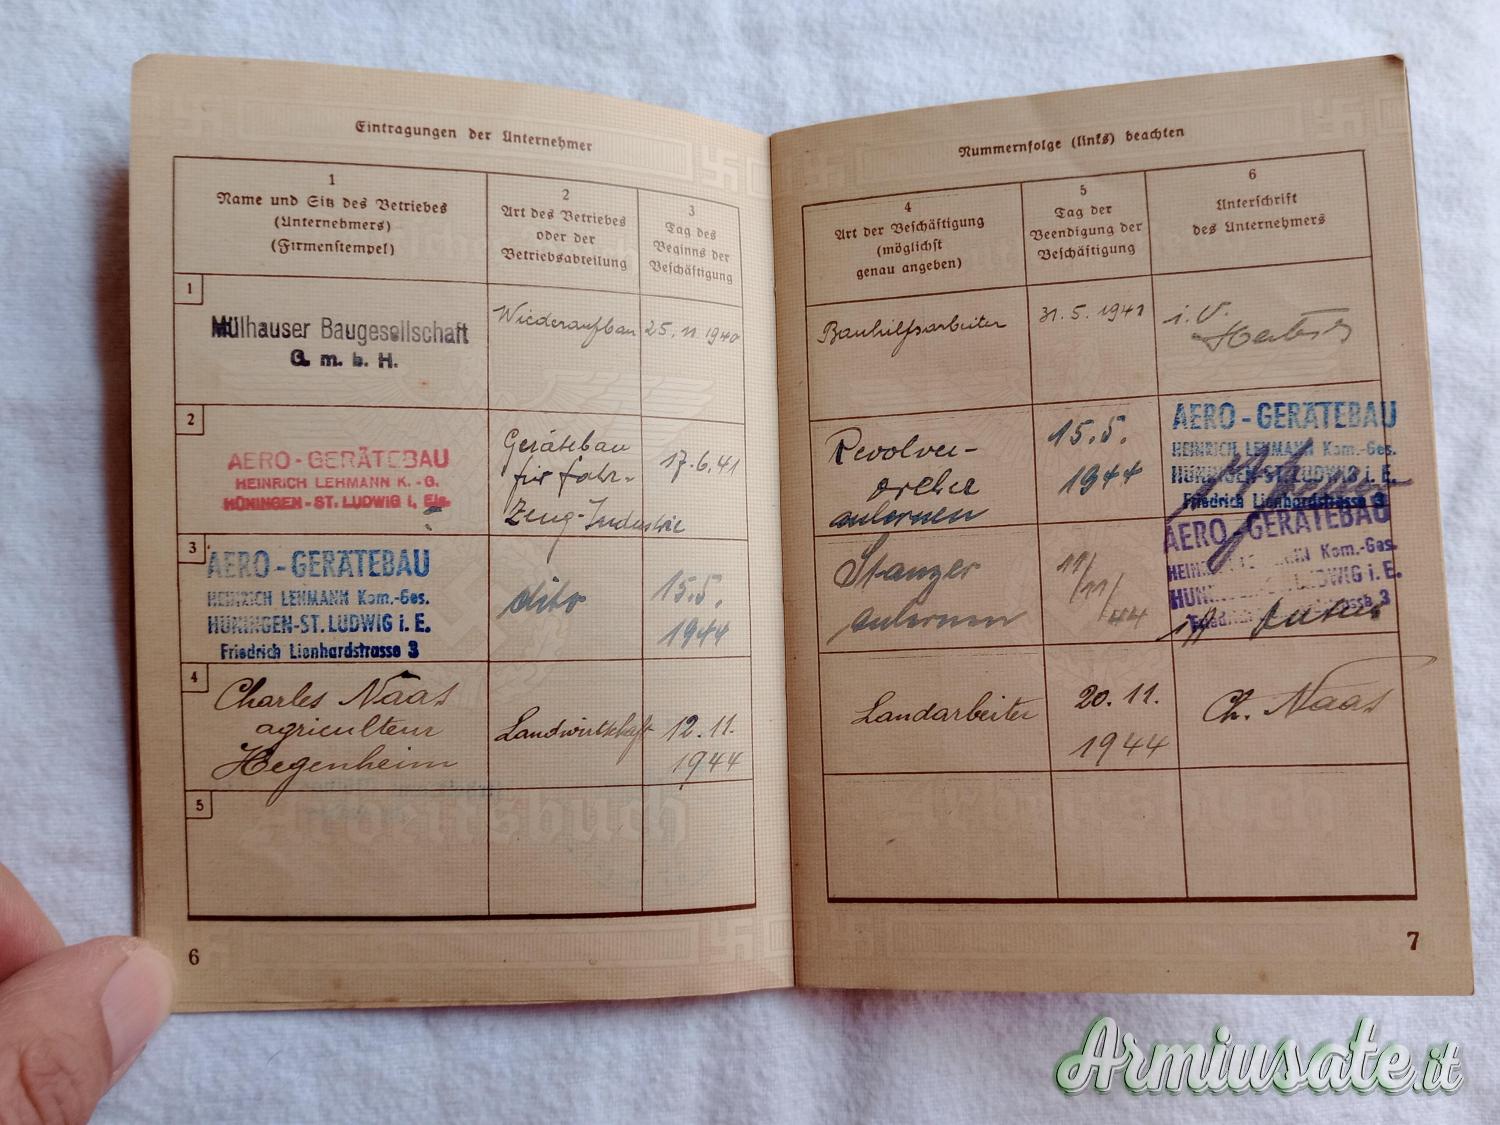 Eintragungen der Unternehmer
1
Name und Sitz des Betriebes
(Unternehmers)
(Firmenstempel)
2
Art des Betriebes
oder der
Betriebsabteilung
3
Tag des
Beginns der
Beschäftigung
1
Mülhauser Baugesellschaft
G. m. b. H.
Wiederaufbau
25. 11. 1940
2
AERO-GERÄTEBAU
HEINRICH LEHMANN K.-G.
HÜNINGEN-ST. LUDWIG i. Els.
Gerätebau
für Fahr-
Zeug-Industrie
17.6.41
3
AERO-GERÄTEBAU
HEINRICH LEHMANN Kom.-Ges.
HÜNINGEN-ST. LUDWIG i. E.
Friedrich Lienhardstrasse 3
dito
15.5.
1944
4
Charles Naas
agriculteur
Hegenheim
Landwirtschaft
12.11.
1944
5
Arbeitsbuch
6
Nummernfolge (links) beachten
4
Art der Beschäftigung
(möglichst
genau angeben)
5
Tag der
Beendigung der
Beschäftigung
6
Unterschrift
des Unternehmers
Bauhilfsarbeiter
31. 5. 1941
i. V.
Revolver-
dreher
anlernen
15.5.
1944
AERO-GERÄTEBAU
HEINRICH LEHMANN Kom.-Ges.
HÜNINGEN-ST. LUDWIG i. E.
Friedrich Lienhardstrasse 3
Stanzer
anlernen
11/
11/
44
AERO-GERÄTEBAU
HEINRICH LEHMANN Kom.-Ges.
HÜNINGEN-ST. LUDWIG i. E.
Friedrich Lienhardstrasse 3
Landarbeiter
20.11.
1944
Ch. Naas
7
Armiusate.it